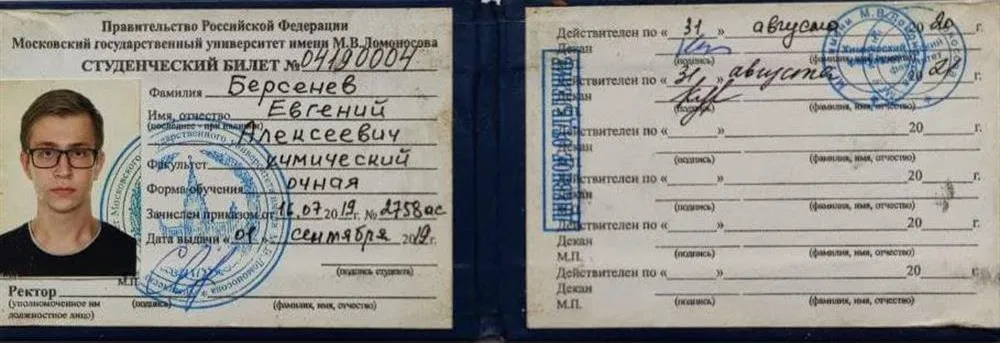 Правительство Российской Федерации
Московский государственный университет имени М.В.Ломоносова
СТУДЕНЧЕСКИЙ БИЛЕТ № 04190004
Фамилия Берсенев
Имя, отчество Евгений
(последнее - при наличии) Алексеевич
Факультет химический
Форма обучения очная
Зачислен приказом от 16.07 2019 г. № 2758ас
Дата выдачи «01» сентября 2019г.
(подпись студента)
М.П.
Ректор
(уполномоченное им должностное лицо) (подпись) (фамилия, имя, отчество)
ДНЕВНОЕ ОТДЕЛЕНИЕ
Действителен по «31» августа 2020 г.
Декан
(подпись) (фамилия, имя, отчество)
Действителен по «31» августа 20 г.
Декан
(подпись) (фамилия, имя, отчество)
Действителен по « » 20 г.
Декан
(подпись) (фамилия, имя, отчество)
Действителен по « » 20 г.
Декан
(подпись) (фамилия, имя, отчество)
Действителен по « » 20 г.
Декан
М.П. (подпись) (фамилия, имя, отчество)
Действителен по « » 20 г.
Декан
М.П. (подпись) (фамилия, имя, отчество)